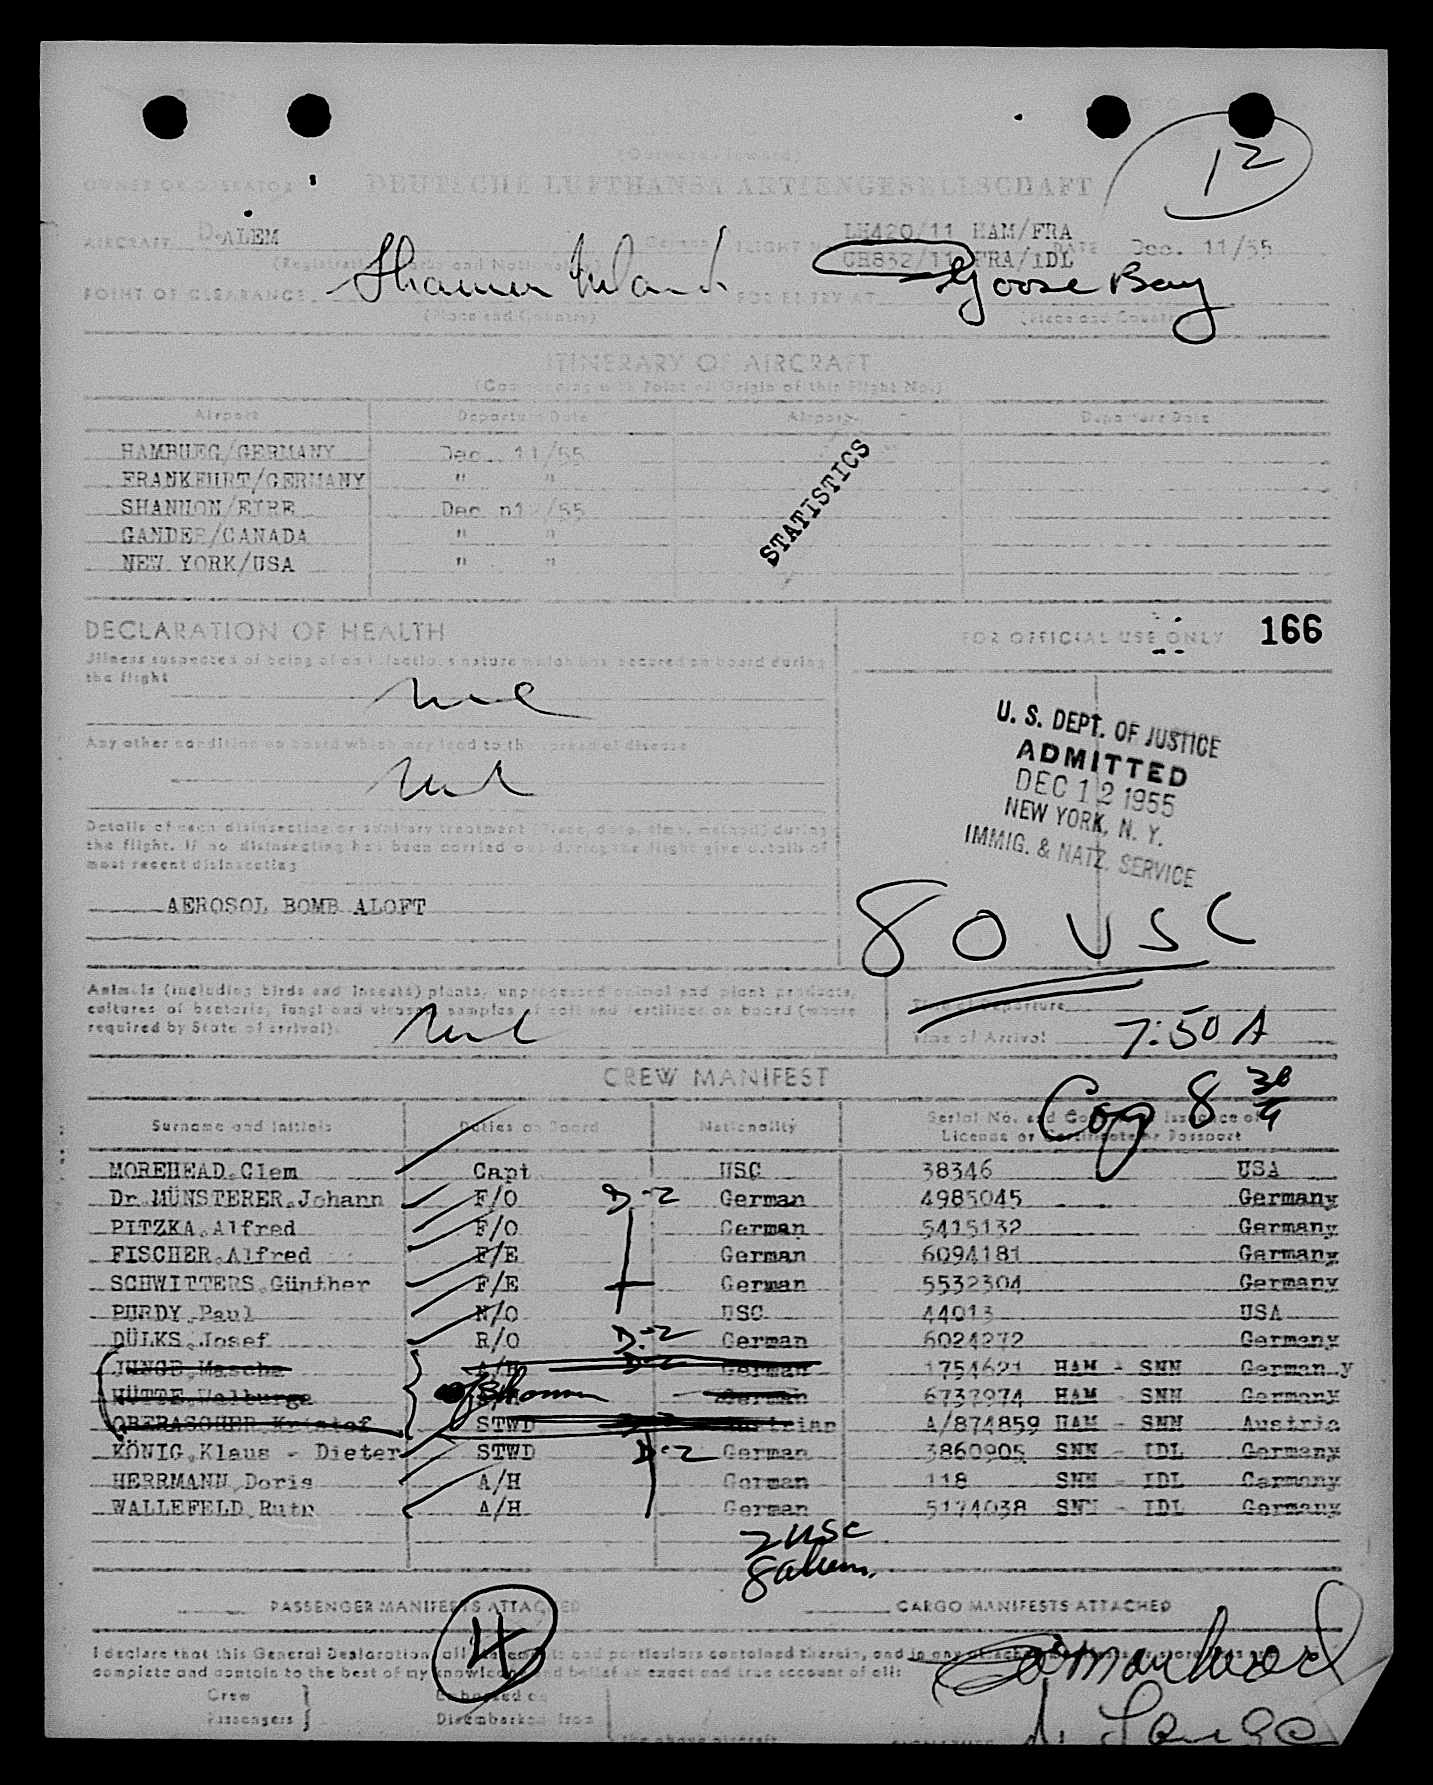 12
(Outward/Inward)
OWNER OR OPERATOR DEUTSCHE LUFTHANSA AKTIENGESELLSCHAFT
AIRCRAFT D-ALEM German FLIGHT N LH420/11 HAM/FRA DATE Dec. 11/55
CH832/11 FRA/IDL
(Registration Marks and Nationality)
POINT OF CLEARANCE Shannon Ireland FOR ENTRY AT Goose Bay
(Place and Country) (Place and Country)
ITINERARY OF AIRCRAFT
(Commencing with Point of Origin of this Flight No.)
Airport Departure Date Airport Departure Date
HAMBURG/GERMANY Dec. 11/55
FRANKFURT/GERMANY " "
SHANNON/EIRE Dec n12/55
GANDER/CANADA " "
NEW YORK/USA " "
STATISTICS
DECLARATION OF HEALTH FOR OFFICIAL USE ONLY 166
Illness suspected of being of an infectious nature which has occured on board during
the flight
nil
Any other condition on board which may lead to the spread of disease
nil
Details of each disinsecting or sanitary treatment (Place, date, time, method) during
the flight. If no disinsecting has been carried out during the flight give details of
most recent disinsecting
AEROSOL BOMB ALOFT
U. S. DEPT. OF JUSTICE
ADMITTED
DEC 12 1955
NEW YORK, N. Y.
IMMIG. & NATZ. SERVICE
80 USC
Animals (including birds and insects) plants, unprocessed animal and plant products,
cultures of bacteria, fungi and viruses, samples of soil and fertilizer on board (where
required by State of arrival).
nil
Time of Departure
Time of Arrival 7:50 A
CREW MANIFEST
Surname and Initials Duties on Board Nationality Serial No. and Co Issuance of
License or Certificate or Passport
MOREHEAD, Clem Capt USC 38346 USA
Dr. MÜNSTERER, Johann F/O D-2 German 4985045 Germany
PITZKA, Alfred F/O German 5415132 Germany
FISCHER, Alfred F/E German 6094181 Germany
SCHWITTERS, Günther F/E German 5532304 Germany
PURDY, Paul N/O USC 44013 USA
DÜLKS, Josef R/O D-2 German 6024272 Germany
JUNGE, Mascha A/H D-2 German 1754621 HAM - SNN German.y
HÜTTE, Walburga German 6737974 HAM - SNN Germany
OBERASCHER, Kristof STWD Austrian A/874859 HAM - SNN Austria
KÖNIG, Klaus - Dieter STWD D-2 German 3860905 SNN - IDL Germany
HERRMANN, Doris A/H German 118 SNN - IDL Germany
WALLEFELD, Ruth A/H German 5174038 SNN - IDL Germany
2 USC
8 aliens.
PASSENGER MANIFESTS ATTACHED CARGO MANIFESTS ATTACHED
4
I declare that this General Declaration, all statements and particulars contained therein, and in any
complete and contain to the best of my knowledge and belief an exact and true account of all:
Crew
Passengers
Embarked on
Disembarked from
the above aircraft